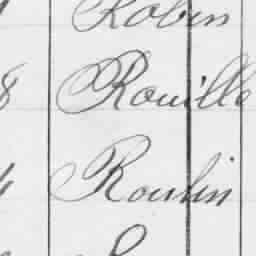 Robin
8 Rouille
4 Roulin